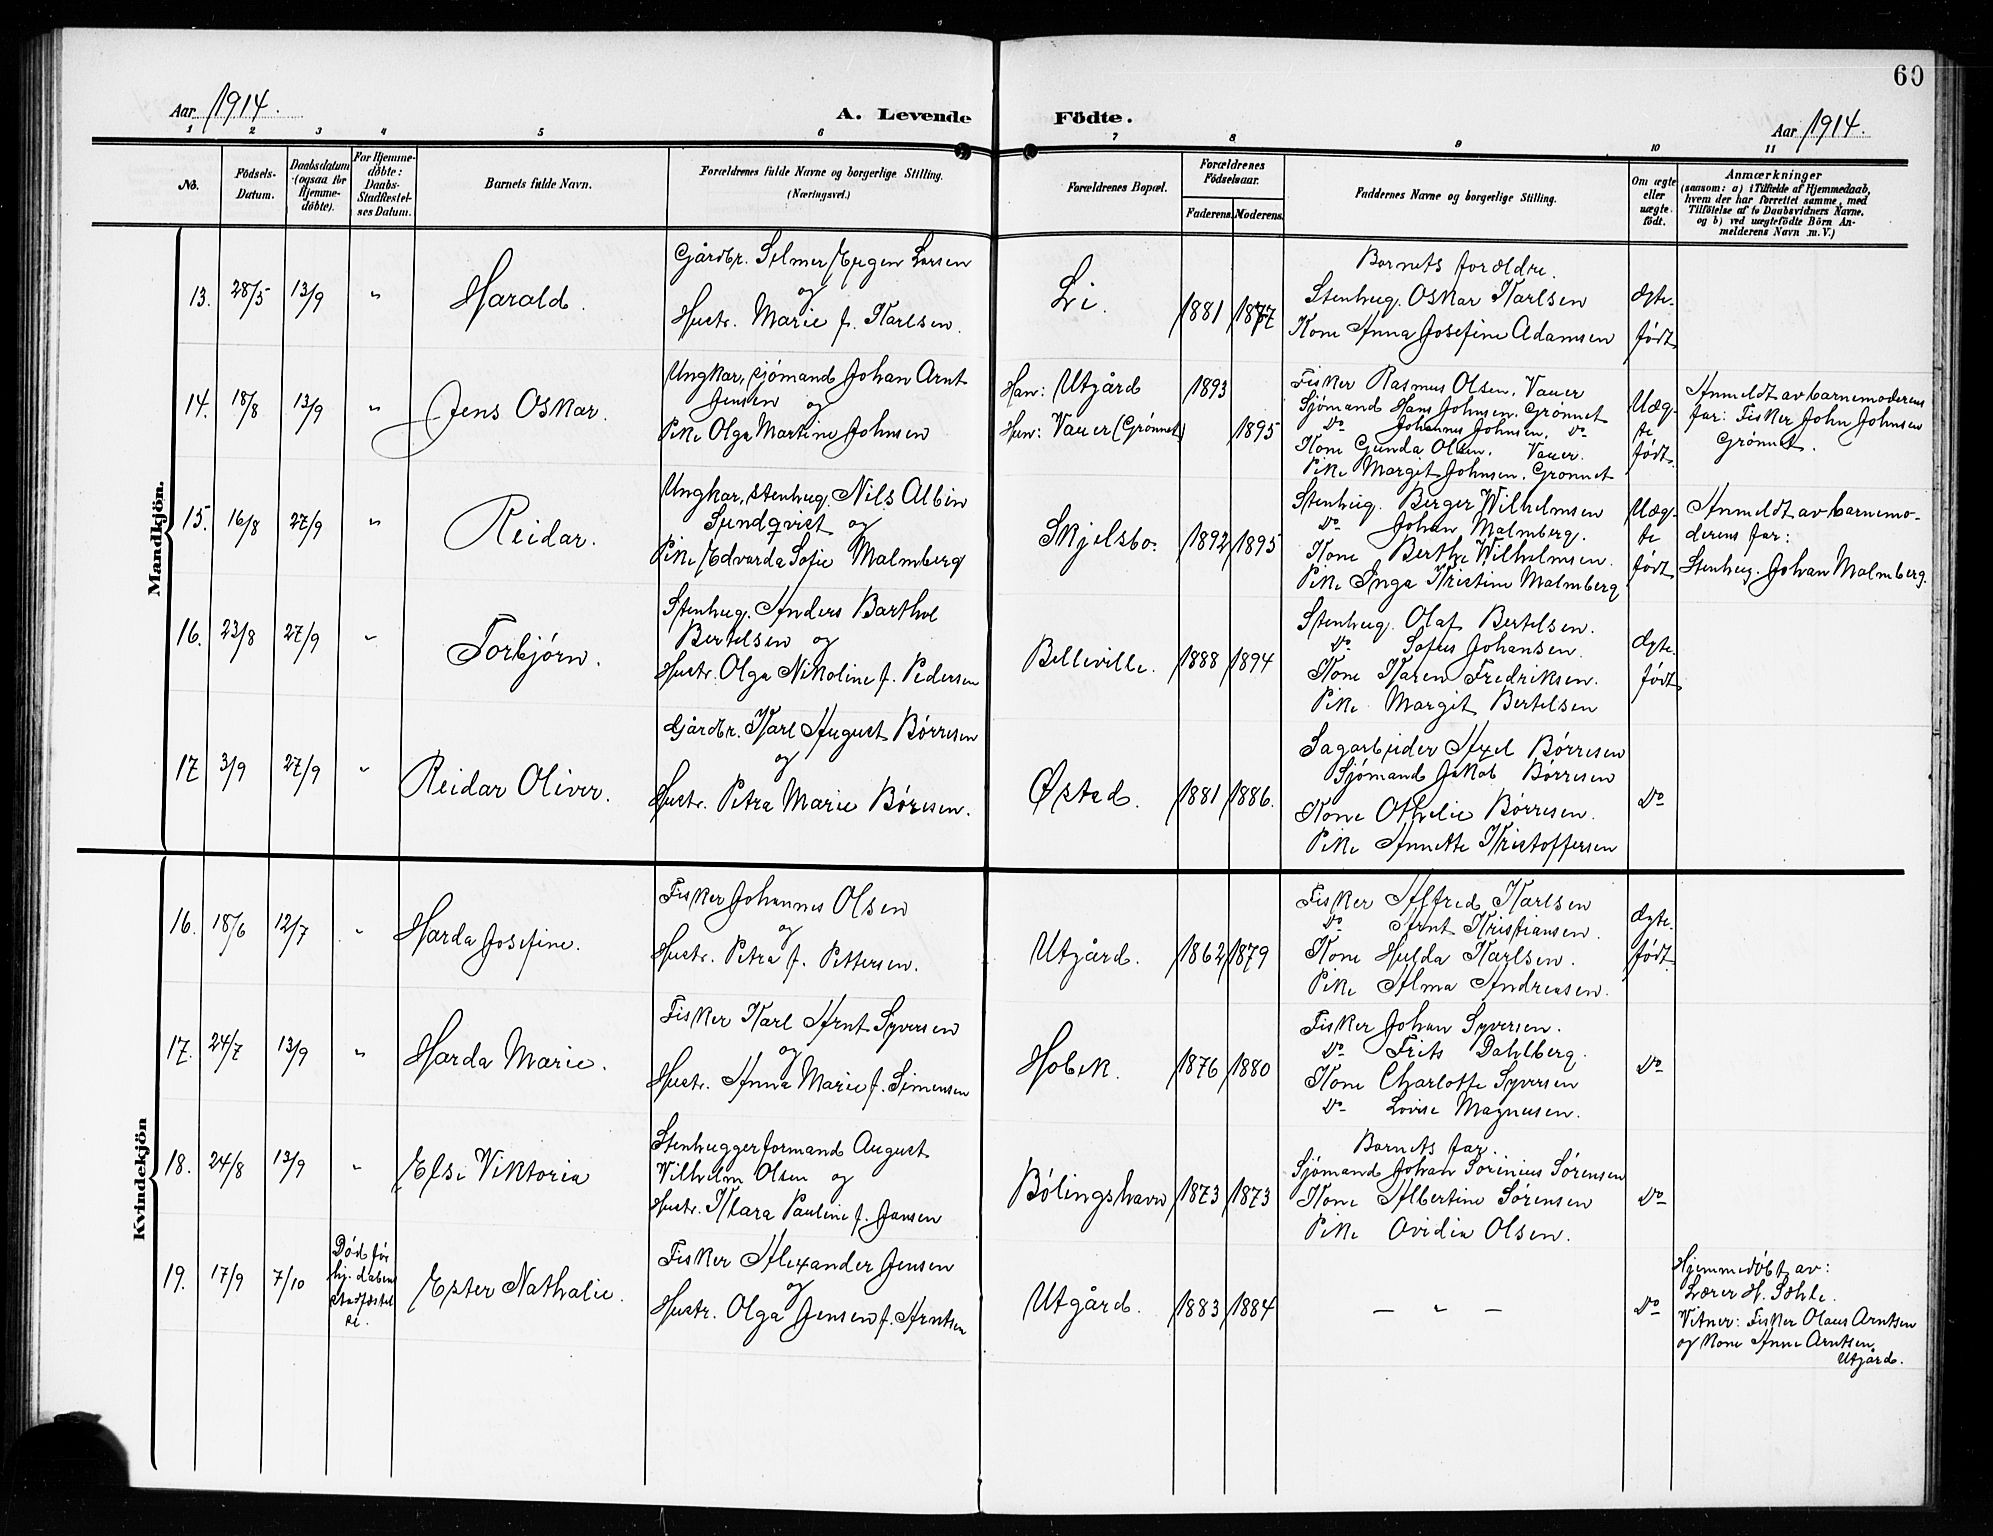 60
Aar 1914.
A. Levende Födte.
Aar 1914.
1 2 3 4 5 6 7 8 9 10 11
No.
Födsels-
Datum.
Daabsdatum
(ogsaa for
Hjemme-
döbte).
For Hjemme-
döbte:
Daabs-
Stadfæstel-
ses Datum.
Barnets fulde Navn.
Forældrenes fulde Navne og borgerlige Stilling.
(Næringsvei.)
Forældrenes Bopæl.
Forældrenes
Födselsaar.
Faderens.
Moderens.
Faddernes Navne og borgerlige Stilling.
Om ægte
eller
uægte
födt.
Anmærkninger
(saasom: a) i Tilfælde af Hjemmedaab,
hvem der har forrettet samme, med
Tilföielse af to Daabsvidners Navne,
og b) ved uægtefödte Börn An-
melderens Navn m. V.)
Mandkjön.
13.
28/5
13/9
"
Harald.
Gårdbr. Selmer Eugen Larsen
og
Hustr. Marie f. Karlsen.
Li.
1881
1877
Barnets foreldre.
Stenhug. Oskar Karlsen
Kone Anna Josefine Adamsen
Ægte-
født
14.
18/8
13/9
"
Jens Oskar.
Ungkar, sjømand Johan Arnt
Jensen og
Pike Olga Martine Johnsen
Han: Utgård
Hun: Vauer (Grønnet)
1893
1895
Fisker Rasmus Olsen. Vauer
Sjømand Hans Johnsen. Grønnet
Do Johannes Johnsen. Do
Kone Gunda Olsen. Vauer.
Pike Margit Johnsen. Grønnet
Uæg-
te
født
Anmeldt av barnemoderens
far: Fisker John Johnsen
Grønnet.
15.
16/8
27/9
"
Reidar.
Ungkar, stenhug. Nils Albin
Sundqvist og
Pike Edvarda Sofie Malmberg
Skjelsbo.
1892
1895
Stenhug. Berger Wilhelmsen
Do Johan Malmberg.
Kone Berthe Wilhelmsen.
Pike Inga Kristine Malmberg
Uæg-
te
født
Anmeldt av barnemo-
derens far:
Stenhug. Johan Malmberg.
16.
23/8
27/9
"
Torbjørn.
Stenhug. Anders Barthol
Bertelsen og
Hustr. Olga Nikoline f. Pedersen
Belleville.
1888
1894
Stenhug. Olaf Bertelsen.
Do Sofus Johansen.
Kone Karen Fredriksen.
Pike Margit Bertelsen
Ægte-
født
17
3/9
27/9
"
Reidar Oliver.
Gårdbr. Karl August Børresen
og
Hustr. Petra Marie Børesen.
Østad.
1881
1886.
Sagarbeider Axel Børresen
Sjømand Jakob Børresen
Kone Othelie Børresen.
Pike Annette Kristoffersen
Do
Kvindekjön
16.
18/6
12/7
"
Harda Josefine.
Fisker Johannes Olsen
og
Hustr. Petra f. Pettersen.
Utgård.
1862
1879
Fisker Alfred Karlsen
Do Arnt Kristiansen.
Kone Hulda Karlsen.
Pike Alma Andreasen.
Ægte-
født
17.
24/7
13/9
"
Harda Marie.
Fisker Karl Arnt Syversen
og
Hustr. Anna Marie f. Simensen
Hobek.
1876
1880
Fisker Johan Syversen.
Do Frits Dahlberg.
Kone Charlotte Syversen
Do Lovise Magnusen.
Do
18.
24/8
13/9
"
Else Viktoria
Stenhuggerformand August
Wilhelm Olsen og
Hustr. Klara Pauline f. Jansen
Bølingshavn
1873
1873
Barnets far.
Sjømand Johan Sorinius Sørensen
Kone Albertine Sørensen
Pike Ovidia Olsen.
Do
19.
17/9
7/10
Død før
hj. dabens
stadfæstel
se.
Ester Nathalie.
Fisker Alexander Jensen
og
Hustr. Olga Jensen f. Arntsen
Utgård.
1883
1884
— " —
Do
Hjemmedøbt av:
Lærer H. Søhle.
Vitner: Fisker Olaus Arntsen
og Kone Anne Arntsen,
Utgård.